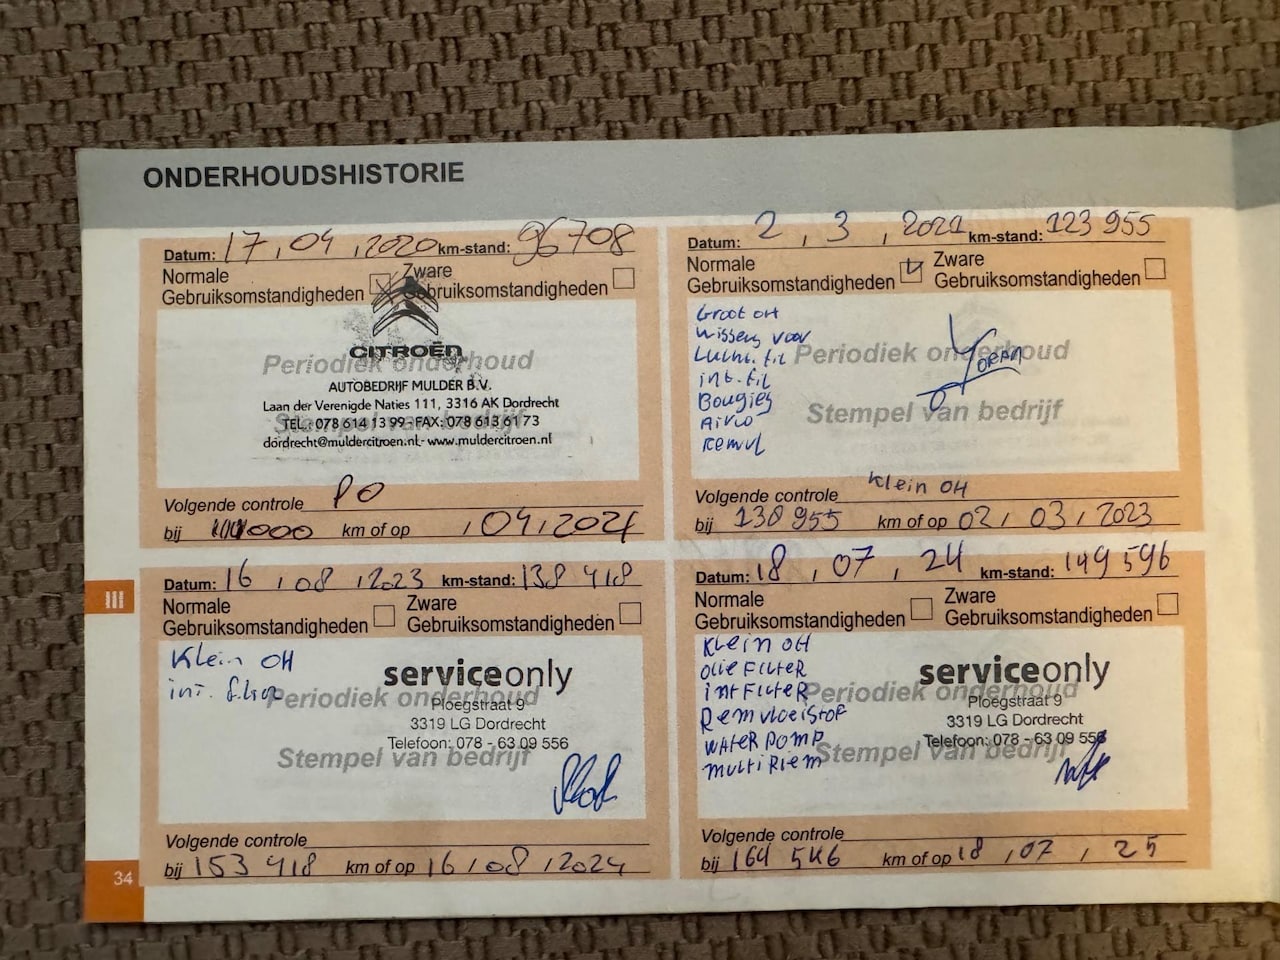 ONDERHOUDSHISTORIE
Datum: 17, 04, 2020 km-stand: 96708
Normale Gebruiksomstandigheden Zware Gebruiksomstandigheden
CITROËN
Periodiek onderhoud
AUTOBEDRIJF MULDER B.V.
Laan der Verenigde Naties 111, 3316 AK Dordrecht
Stempel van bedrijf
TEL.: 078 614 13 99 - FAX: 078 613 61 73
dordrecht@muldercitroen.nl - www.muldercitroen.nl
Volgende controle PO
bij km of op , 04, 2021
Datum: 2, 3, km-stand: 123 955
Normale Gebruiksomstandigheden Zware Gebruiksomstandigheden
Groot OH
Wissers voor
Lucht. fil
int. fil
Bougies
Airco
Remvl
Periodiek onderhoud
Stempel van bedrijf
Volgende controle Klein OH
bij 138 955 km of op 02, 03, 2023
III
Datum: 16, 08, 2023 km-stand: 138 418
Normale Gebruiksomstandigheden Zware Gebruiksomstandigheden
Klein OH
int.
serviceonly
Periodiek onderhoud
Ploegstraat 9
3319 LG Dordrecht
Telefoon: 078 - 63 09 556
Stempel van bedrijf
Volgende controle
bij 153 418 km of op 16, 08, 2024
Datum: 18, 07, 24 km-stand: 149 596
Normale Gebruiksomstandigheden Zware Gebruiksomstandigheden
Klein OH
OLIEFILTER
INTFILTER
Remvloeistof
WATERPOMP
MULTIRIEM
serviceonly
Periodiek onderhoud
Ploegstraat 9
3319 LG Dordrecht
Telefoon: 078 - 63 09 556
Stempel van bedrijf
Volgende controle
bij km of op 18, 07, 25
34